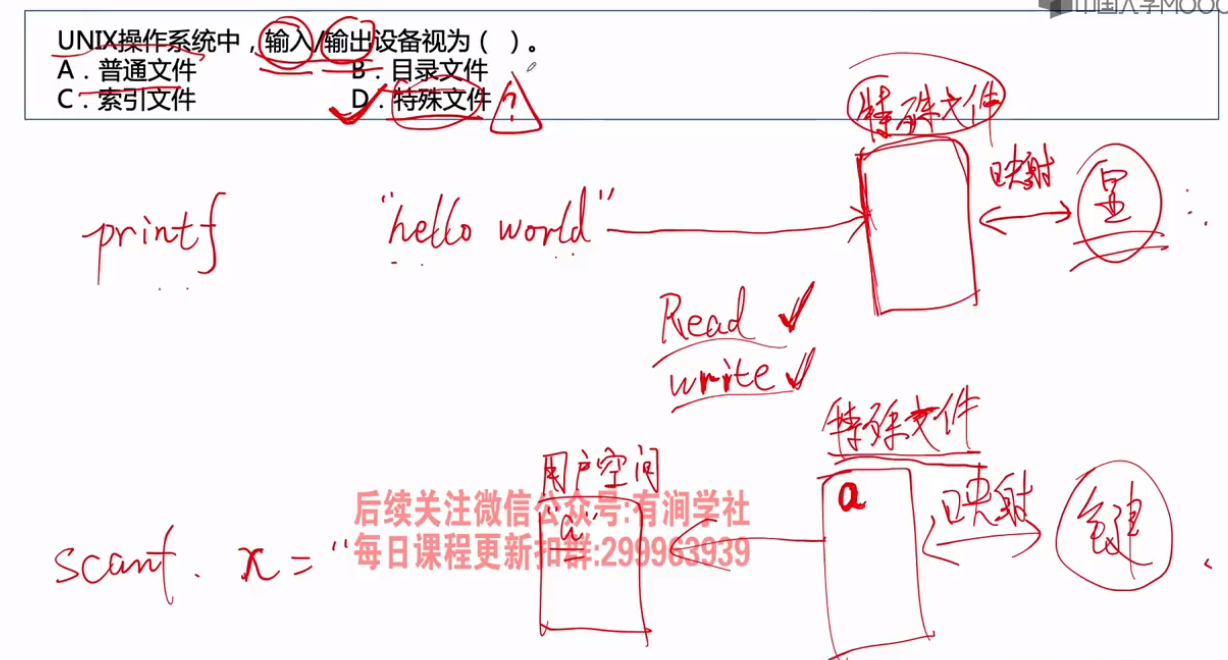 中国大学MOOC
UNIX操作系统中，输入/输出设备视为（ ）。
A．普通文件 B．目录文件
C．索引文件 D．特殊文件 ?
特殊文件
映射 显
printf "hello world"
Read
write
特殊文件
用户空间
a 映射 键
后续关注微信公众号:有涧学社
"a"
每日课程更新扣群:299963939
scanf. x = "